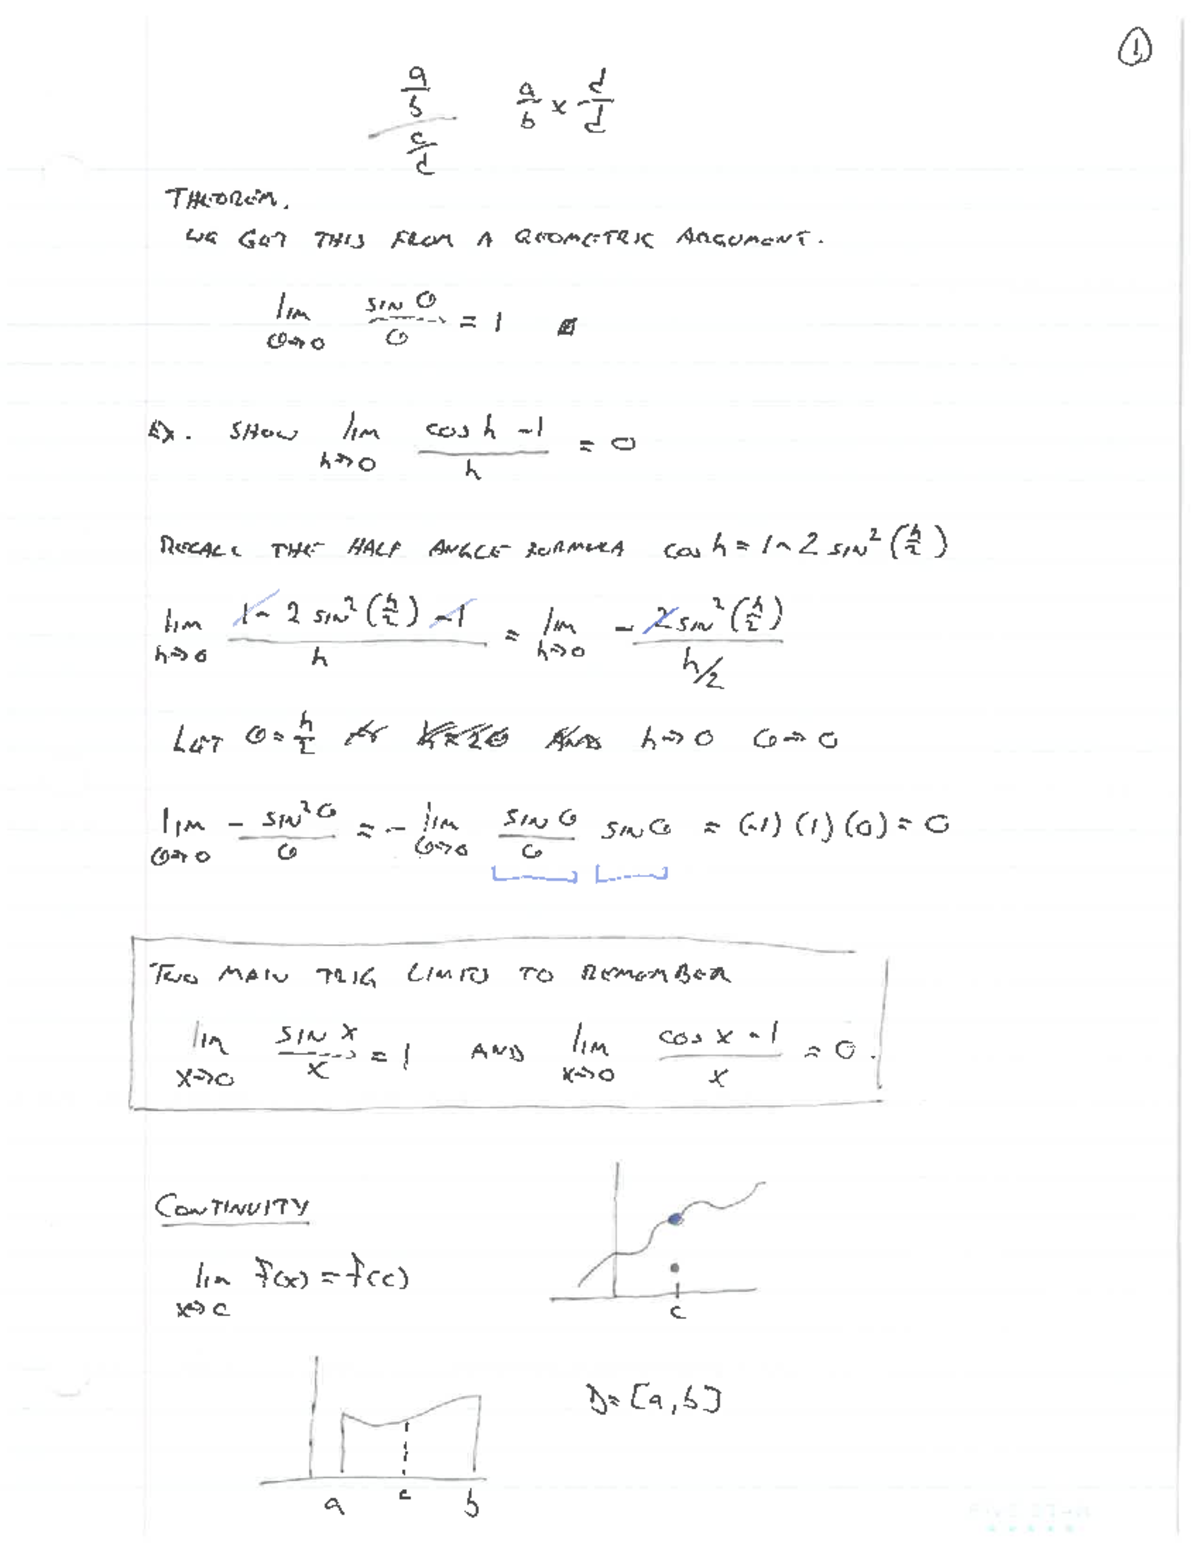 1
a/b / c/d    a/b × d/d
THEOREM.
WE GOT THIS FROM A GEOMETRIC ARGUMENT.
lim θ→0 sin θ / θ = 1
EX. SHOW lim h→0 (cos h - 1) / h = 0
RECALL THE HALF ANGLE FORMULA cos h = 1 - 2 sin²(h/2)
lim h→0 (1 - 2 sin²(h/2) - 1) / h = lim h→0 - 2 sin²(h/2) / (h/2)
LET θ = h/2 h = 2θ AND h→0 θ→0
lim θ→0 - sin²θ / θ = - lim θ→0 sin θ / θ sin θ = (-1)(1)(0) = 0
TWO MAIN TRIG LIMITS TO REMEMBER
lim x→0 sin x / x = 1 AND lim x→0 (cos x - 1) / x = 0.
CONTINUITY
lim x→c f(x) = f(c)
c
D = [a, b]
a c b